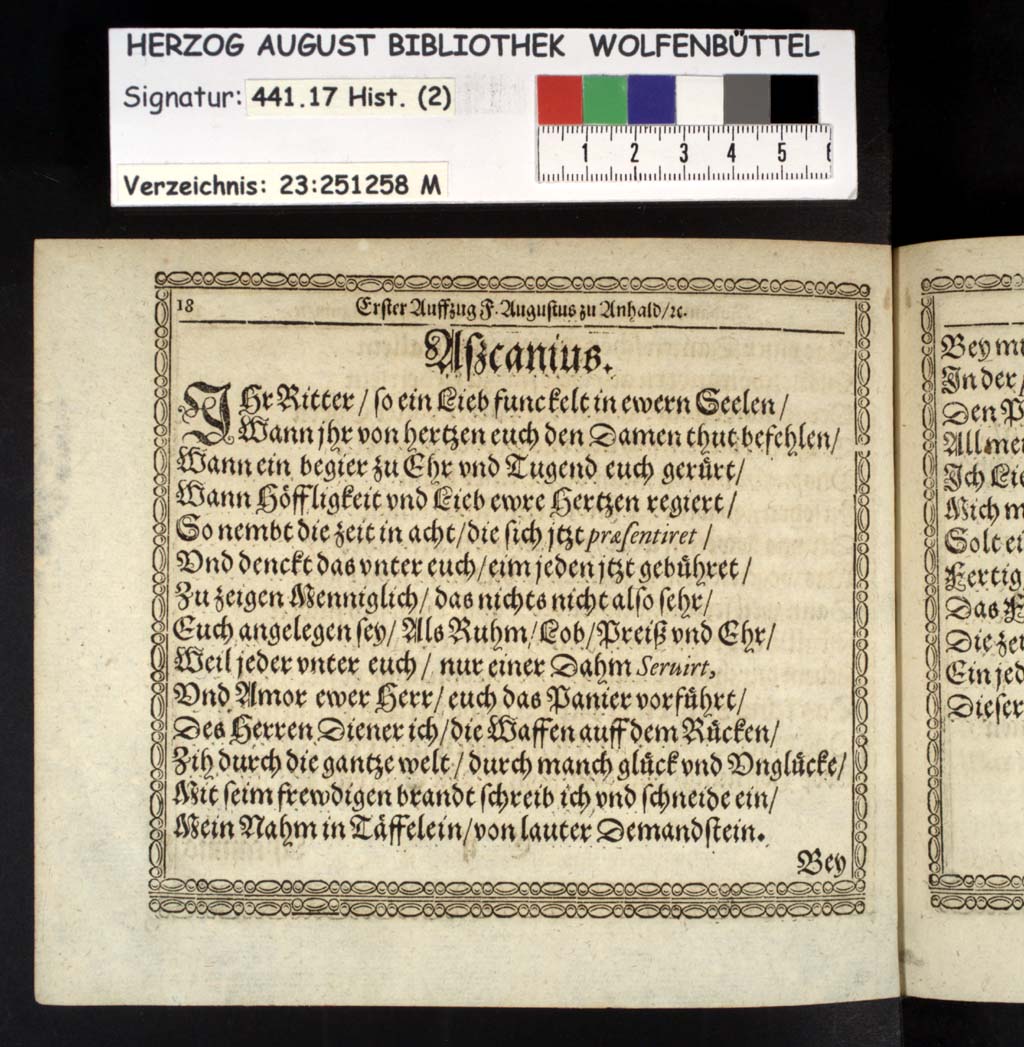 HERZOG AUGUST BIBLIOTHEK WOLFENBÜTTEL
Signatur: 441.17 Hist. (2)
1 2 3 4 5
Verzeichnis: 23:251258 M
18 Erster Auffzug F. Augustus zu Anhald/ꝛc.
Aſzcanius.
IHr Ritter / ſo ein Lieb funckelt in ewern Seelen /
Wann jhr von hertzen euch den Damen thut befehlen/
Wann ein begier zu Ehr vnd Tugend euch gerürt/
Wann Höffligkeit vnd Lieb ewre Hertzen regiert /
So nembt die zeit in acht/die ſich jtzt præſentiret /
Vnd denckt das vnter euch/eim jeden jtzt gebühret /
Zu zeigen Menniglich/ das nichts nicht alſo ſehr/
Euch angelegen ſey/ Als Ruhm/Lob/Preiß vnd Ehr/
Weil jeder vnter euch / nur einer Dahm Seruirt,
Vnd Amor ewer Herr/ euch das Panier vorführt/
Des Herren Diener ich/die Waffen auff dem Rücken/
Zih durch die gantze welt / durch manch glück vnd Vnglücke/
Mit ſeim frewdigen brandt ſchreib ich vnd ſchneide ein/
Mein Nahm in Täffelein/von lauter Demandſtein.
Bey
Bey
In der/
Den
Ich
Mich
Solt
Fertig
Das
Die
Ein
Dieſer